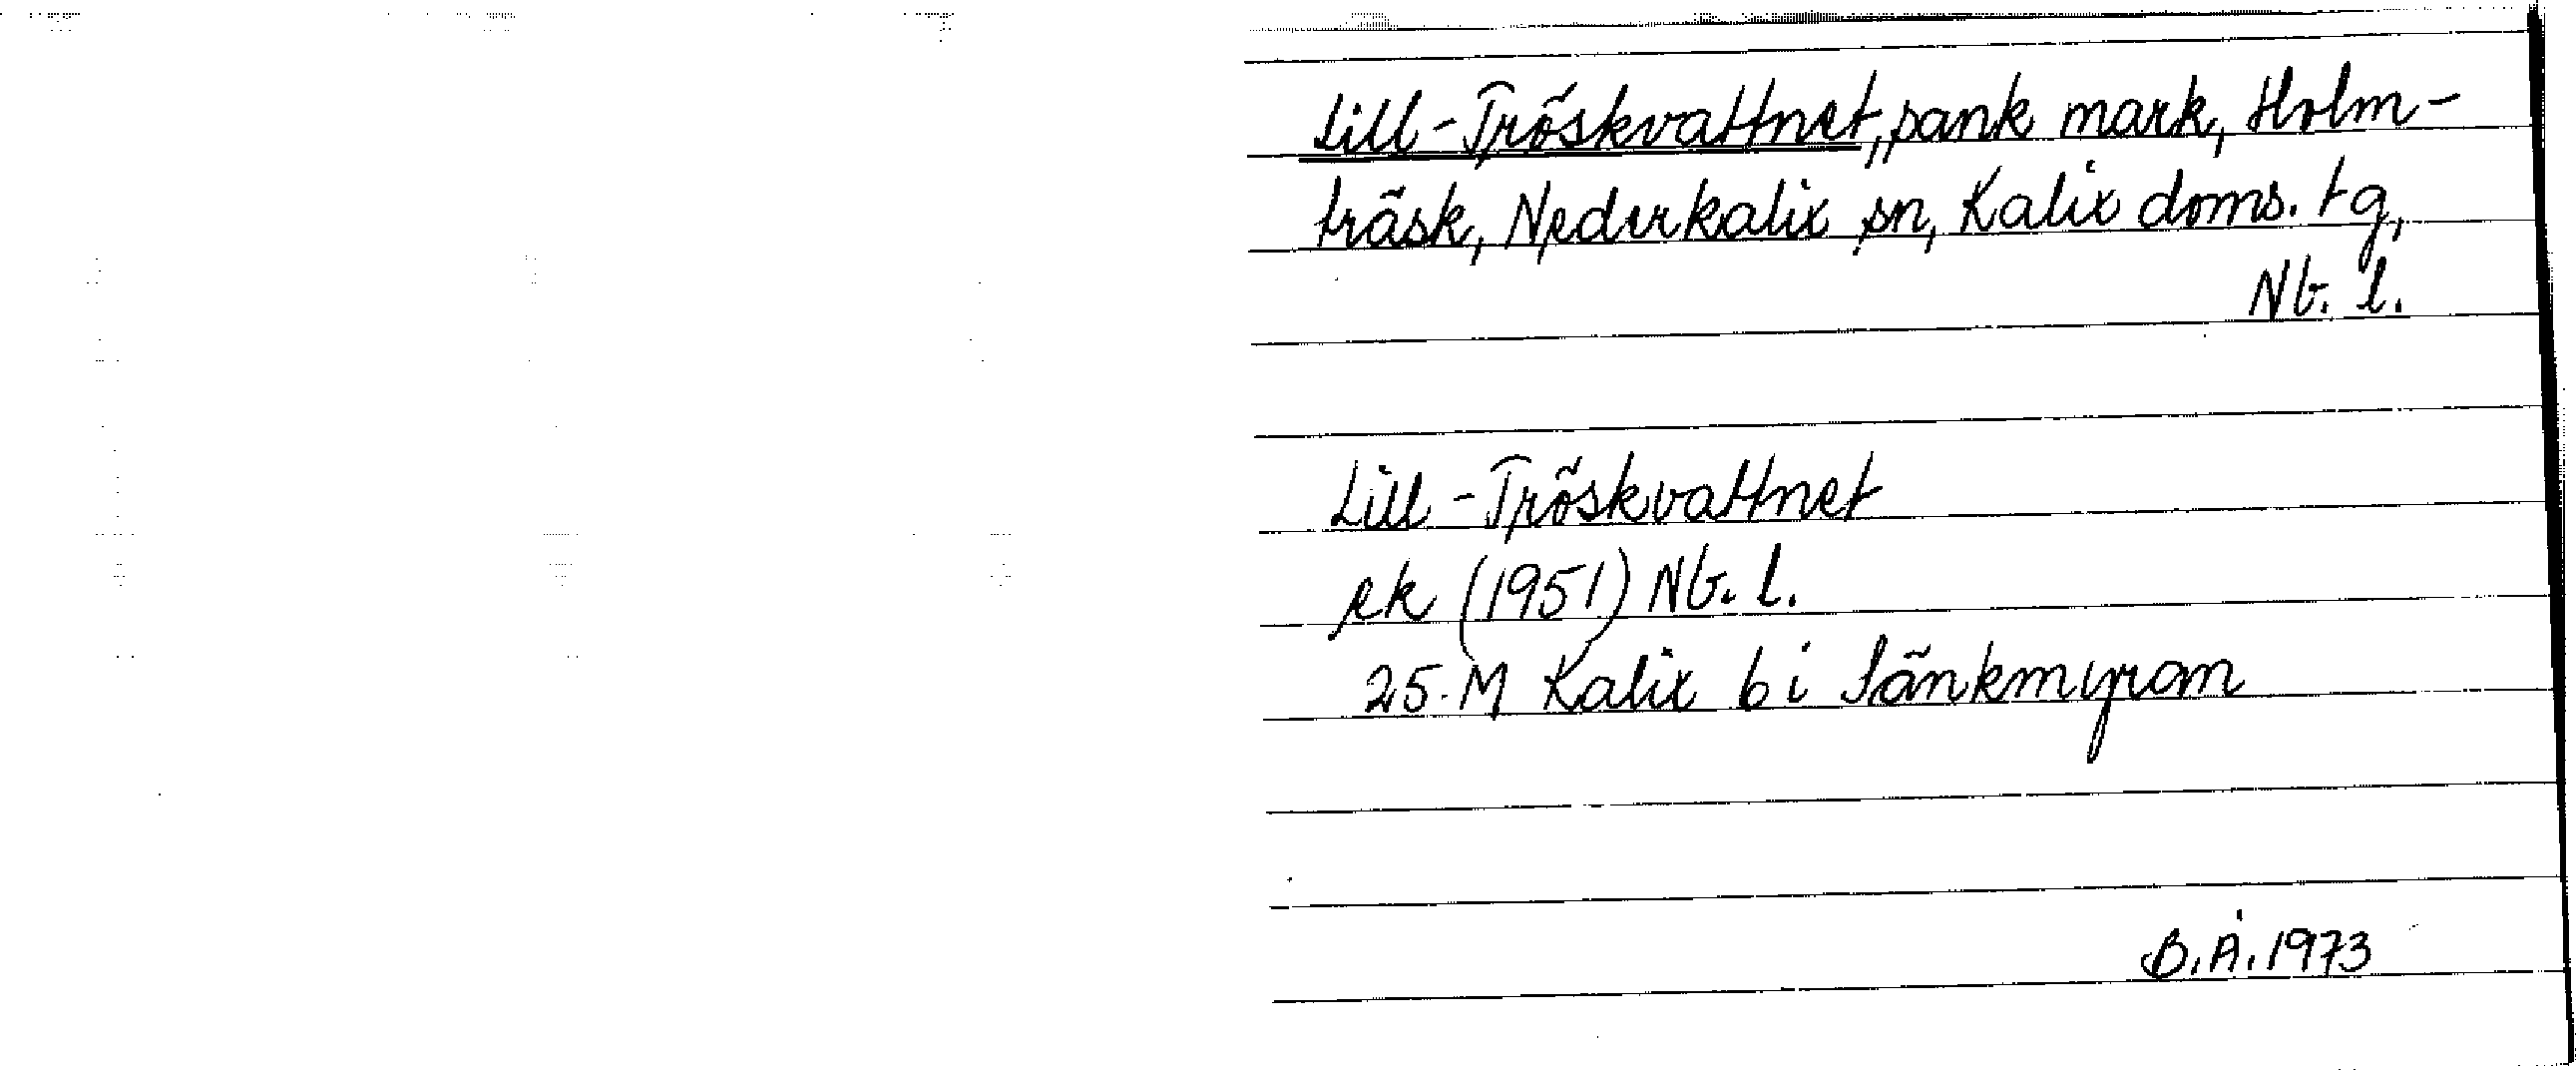 Lill-Tröskvattnet, sank mark, Holm-
träsk, Nederkalix sn, Kalix doms. tg,
Nb. l.
Lill-Tröskvattnet
ek (1951) Nb. l.
25. M Kalix 6 i Sänkmyran
B.Å. 1973